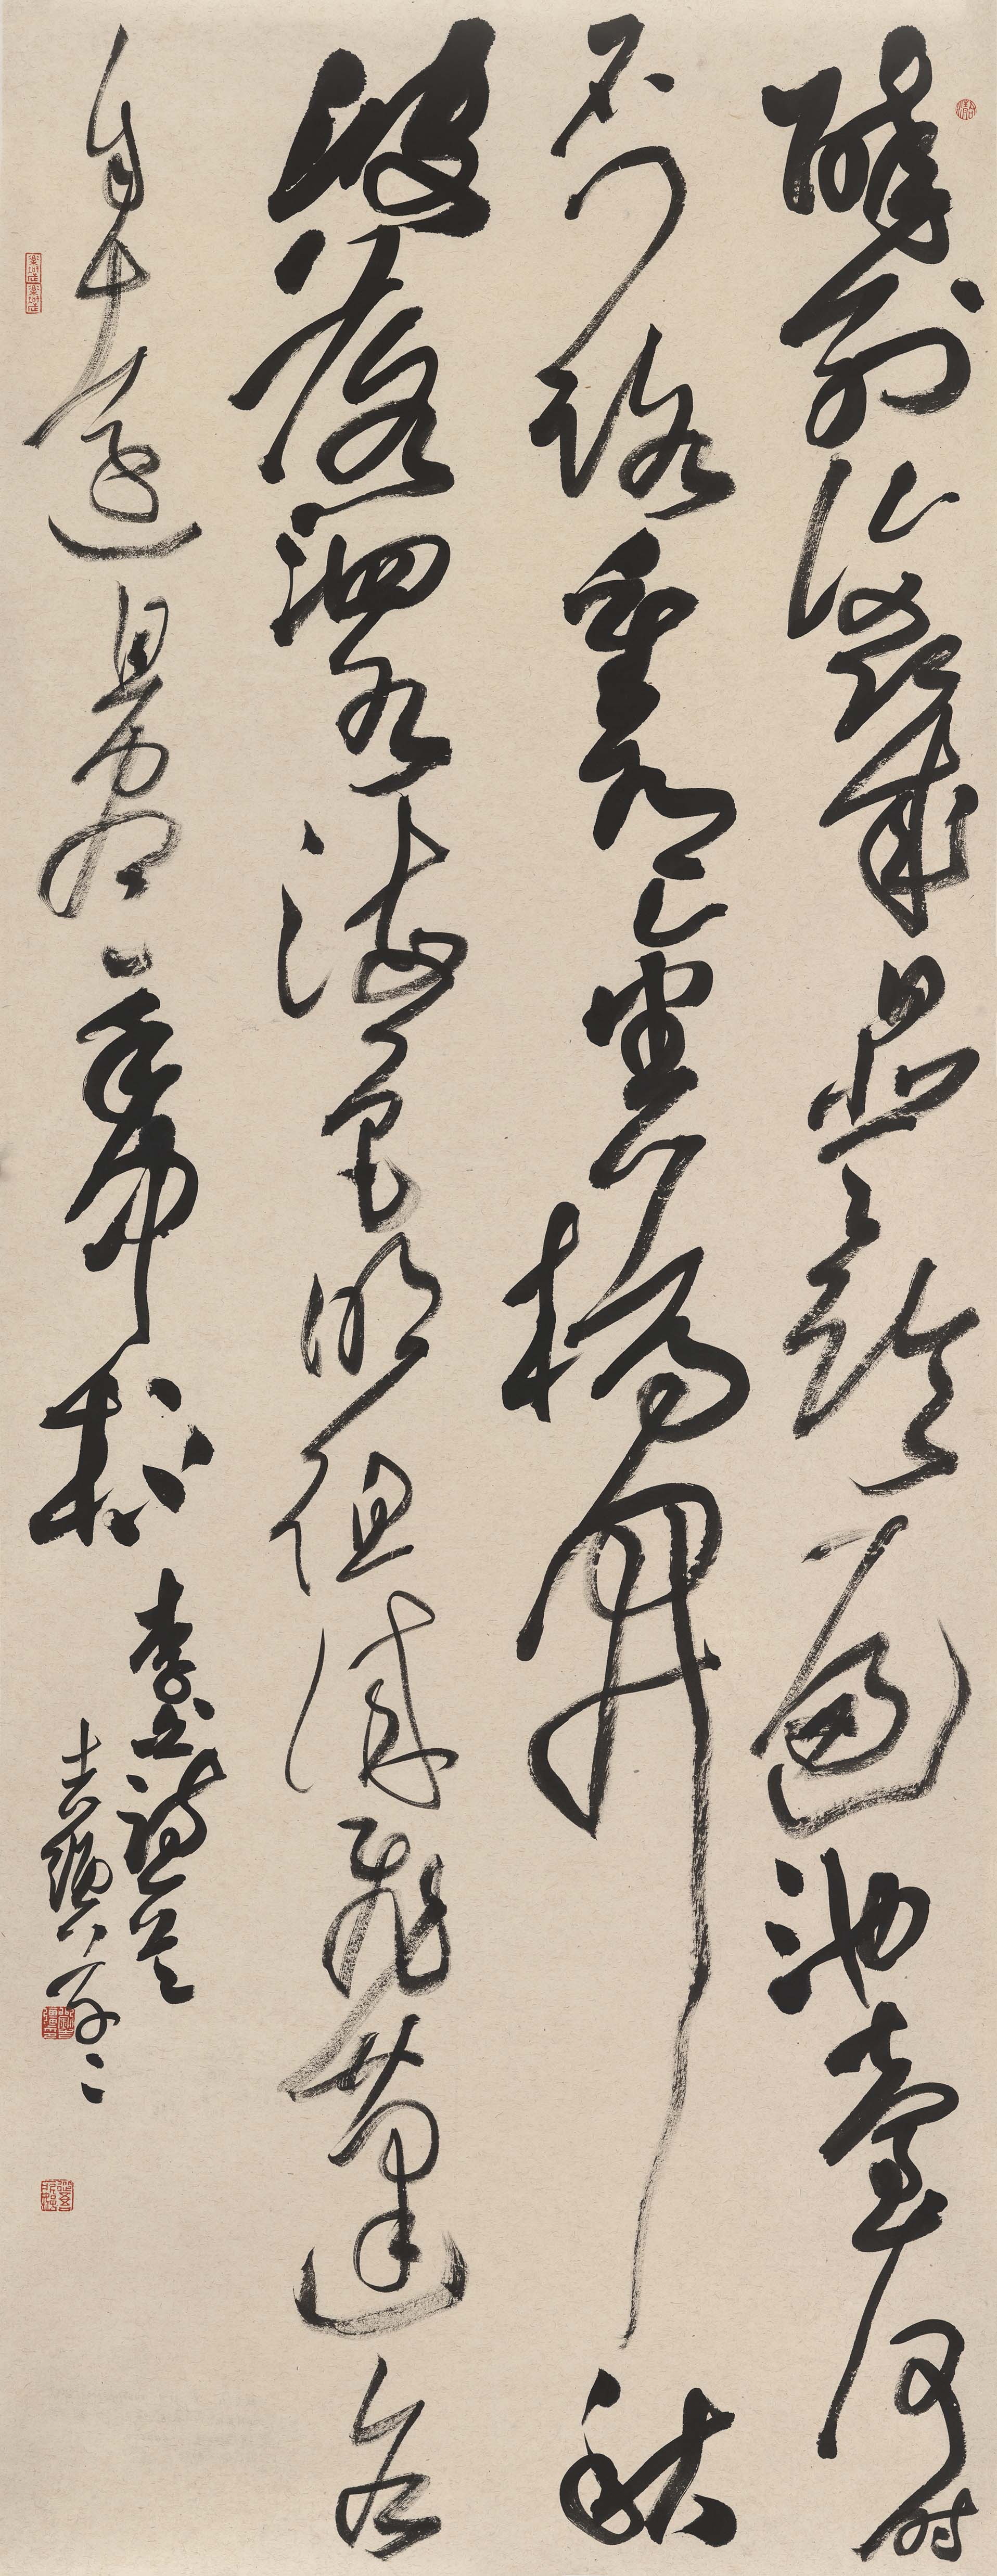 醉別復幾日登臨遍池臺何時
石門路重有金樽開秋
波落泗水海色明徂徠飛蓬各
自遠且盡手中杯
李白詩